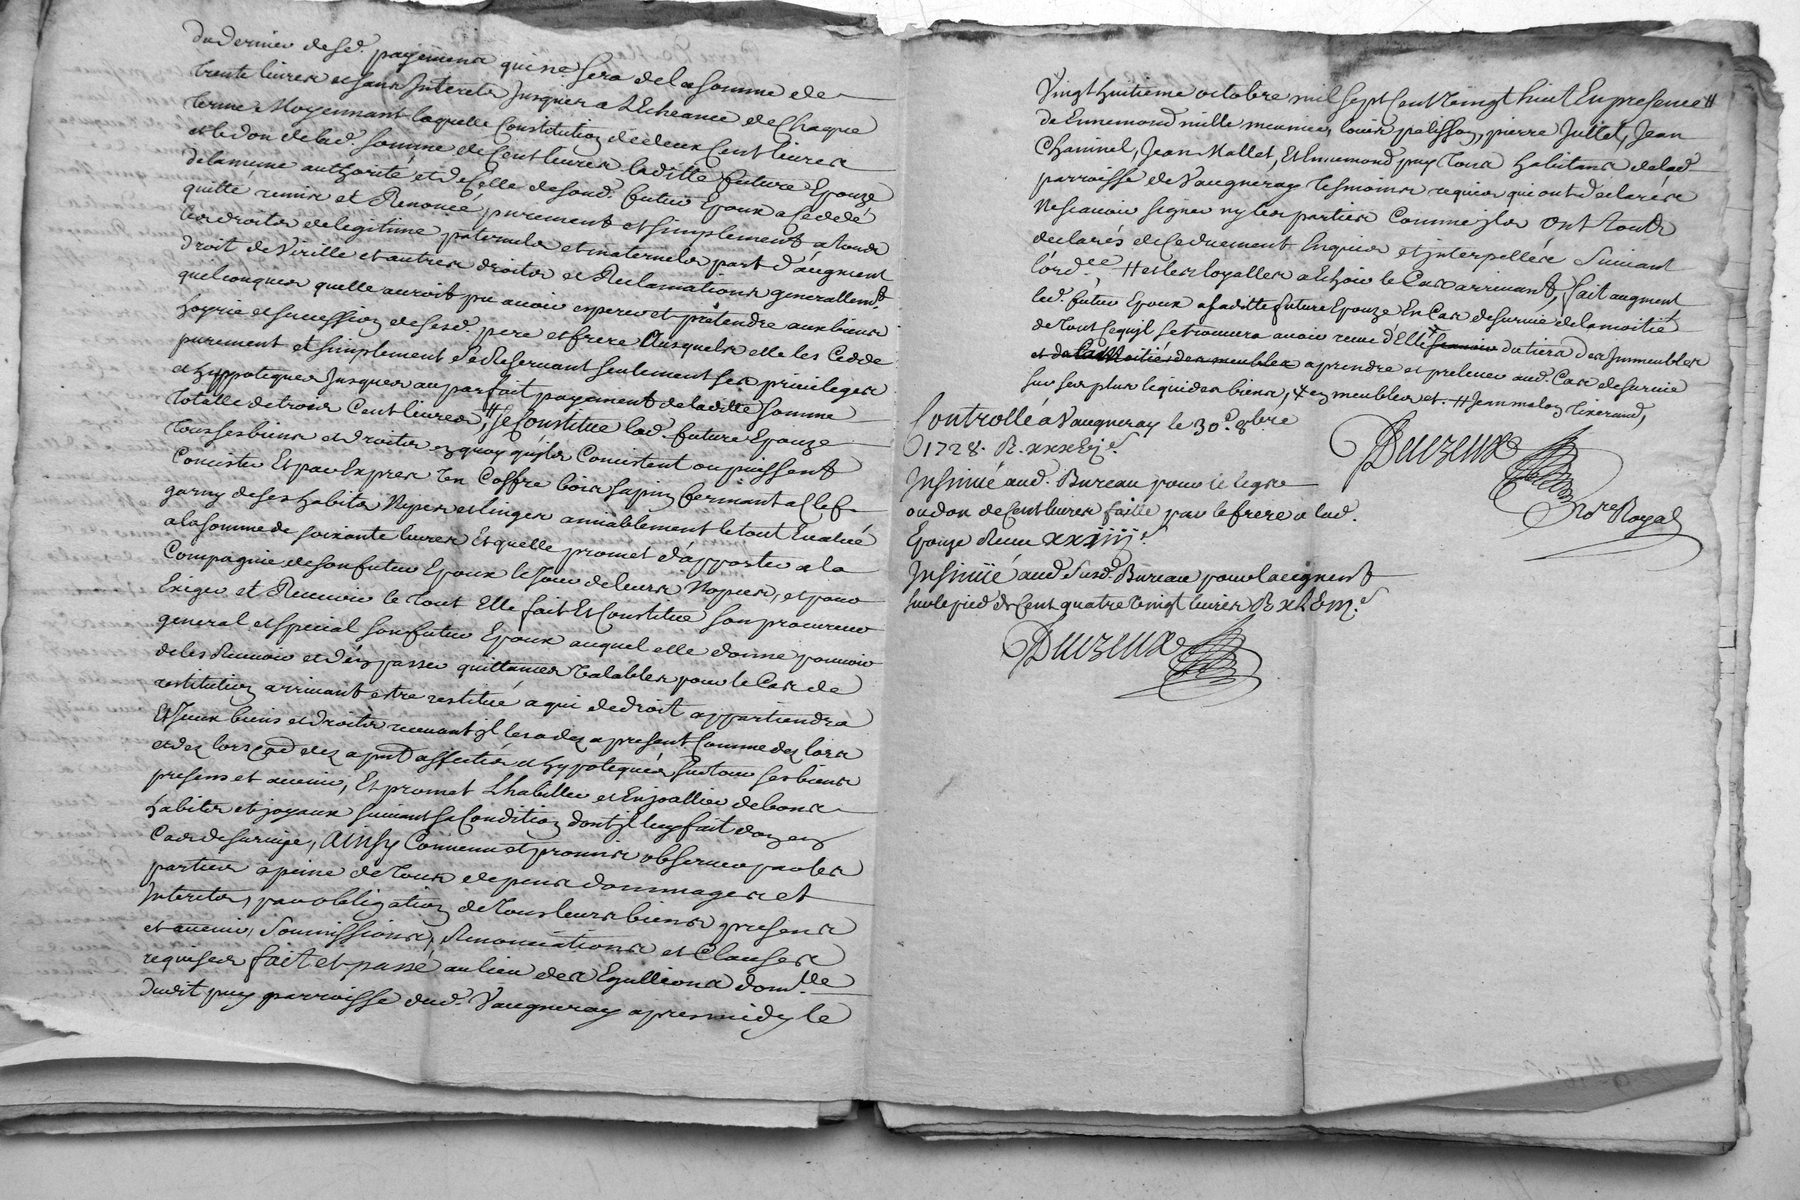 du dernier desd. payements qui ne sera de la somme de
trente livres et sans Interets Jusques a L'Echeance de Chaque
terme Moyennant laquelle Constitution de deux Cent livres
et le don de lad. somme de Cent livres laditte future Epouze
de la meme authorité et de Celle de sond. futur Epoux a Ceddé
quitté remis et Renoncé purement et simplement a tous
les droits de legitime paternels et maternels part d'augment
droit de Virille et autres droits et Reclamations generallemt.
quelconques quelle auroit pu avoir esperer et pretendre aux biens
hoyrie et succession de sesd. pere et frere Ausquels elle les Cedde
purement et simplement se Reservant seulement ses privileges
et hyppoteques Jusques au parfait payement de laditte somme
totalle de trois Cent livres, # Se Constitue lad. future Epouze
tous ses biens et droits en quoy qu'ils Consistent ou puissent
Consister Et par Expres Un Coffre bois sapin fermant a Clef
garny de ses habits Nipes et linges amiablement le tout Evalué
a la somme de soixante livres Et quelle promet d'apporter a la
Compagnie de son futur Epoux le Jour de leurs Nopces, et pour
Exiger et Recevoir le tout Elle fait Et Constitue son procureur
general et special son futur Epoux auquel elle donne pouvoir
de les Recevoir et d'en passer quittances Valables pour le Cas de
restitution arrivant estre restitué a qui de droit appartiendra
Et Iceux biens et droits recevant il les a des a present Comme des lors
et des lors Cõe des a pnt affectés et hypotequés sur tous ses biens
presens et avenir, Et promet L'habiller et Enjoallier de bons
habits et joyaux suivant sa Condition dont il luy fait don en
Cas de survie, Ainsy Convenu et promis observer par les
parties a peine de tous depens dommages et
Interets, par obligation de tous leurs biens presens
et avenir, Soumissions, Renonciations et Clauses
requises fait et passé au lieu des Eguillions domlle
dudit puy parroisse dud. Vaugneray apres midy le
Vingt huitieme octobre mil sept cent Vingt huit En presence #
de Ennemond mille meunier, louis palisson, pierre Juttet, Jean
Chaninel, Jean Mallet, Et Ennemond puy tous habitans de lad.
parroisse de Vaugneray tesmoins requis qui ont declarés
Ne scavoir signer ny les parties Comme ils Ont touts
declarés de Ce duement Enquis et interpellés Suivant
l'ord.ce # et les loyalles a Echoir le Cas arrivant, fait augment
led. futur Epoux a laditte future Epouze En Cas de survie de la moitié
de tout Ce qu'il se trouvera avoir receu d'Elle scavoir du tiers des Immeubles
et de la moitié des meubles a prendre et prelever aud. Cas de survie
sur ses plus liquides biens, & en meubles et. # Jean malon tixerand,
Controllé a Vaugneray le 30e. 8bre
1728. R. xxxEj s.
Insinué aud. Bureau pour le legs
ou don de Cent livres faitte par le frere a lad.
Epouze Receu xxiiij s.
Insinüé aud. Susd. Bureau pour laugment
sur le pied de Cent quatre Vingt livres R
Deuzeux
Nore Royal
Deuzeux